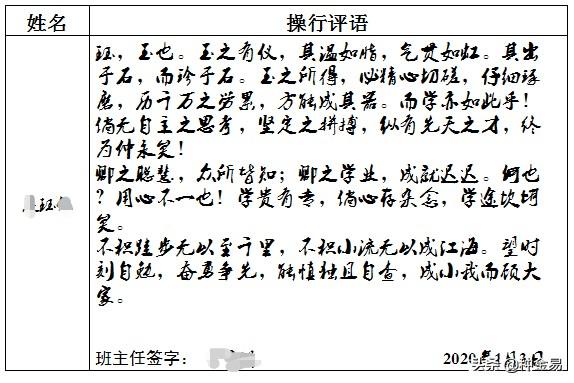 姓名 操行评语
珏,玉也。玉之有仪,其温如脂,气贯如虹。其出
于石,而珍于石。玉之所得,必精心切磋,仔细琢
磨,历千万之劳累,方能成其器。而学亦如此乎!
倘无自主之思考,坚定之拼搏,纵有先天之才,终
为仲永矣!
卿之聪慧,众所皆知;卿之学业,成就迟迟。何也
?用心不一也!学贵有专,倘心存杂念,学途坎坷
矣。
不积跬步无以至千里,不积小流无以成江海。望时
刻自勉,奋勇争先,能慎独且自查,成小我而顾大
家。
班主任签字: 2020年1月3日
头条@种金易